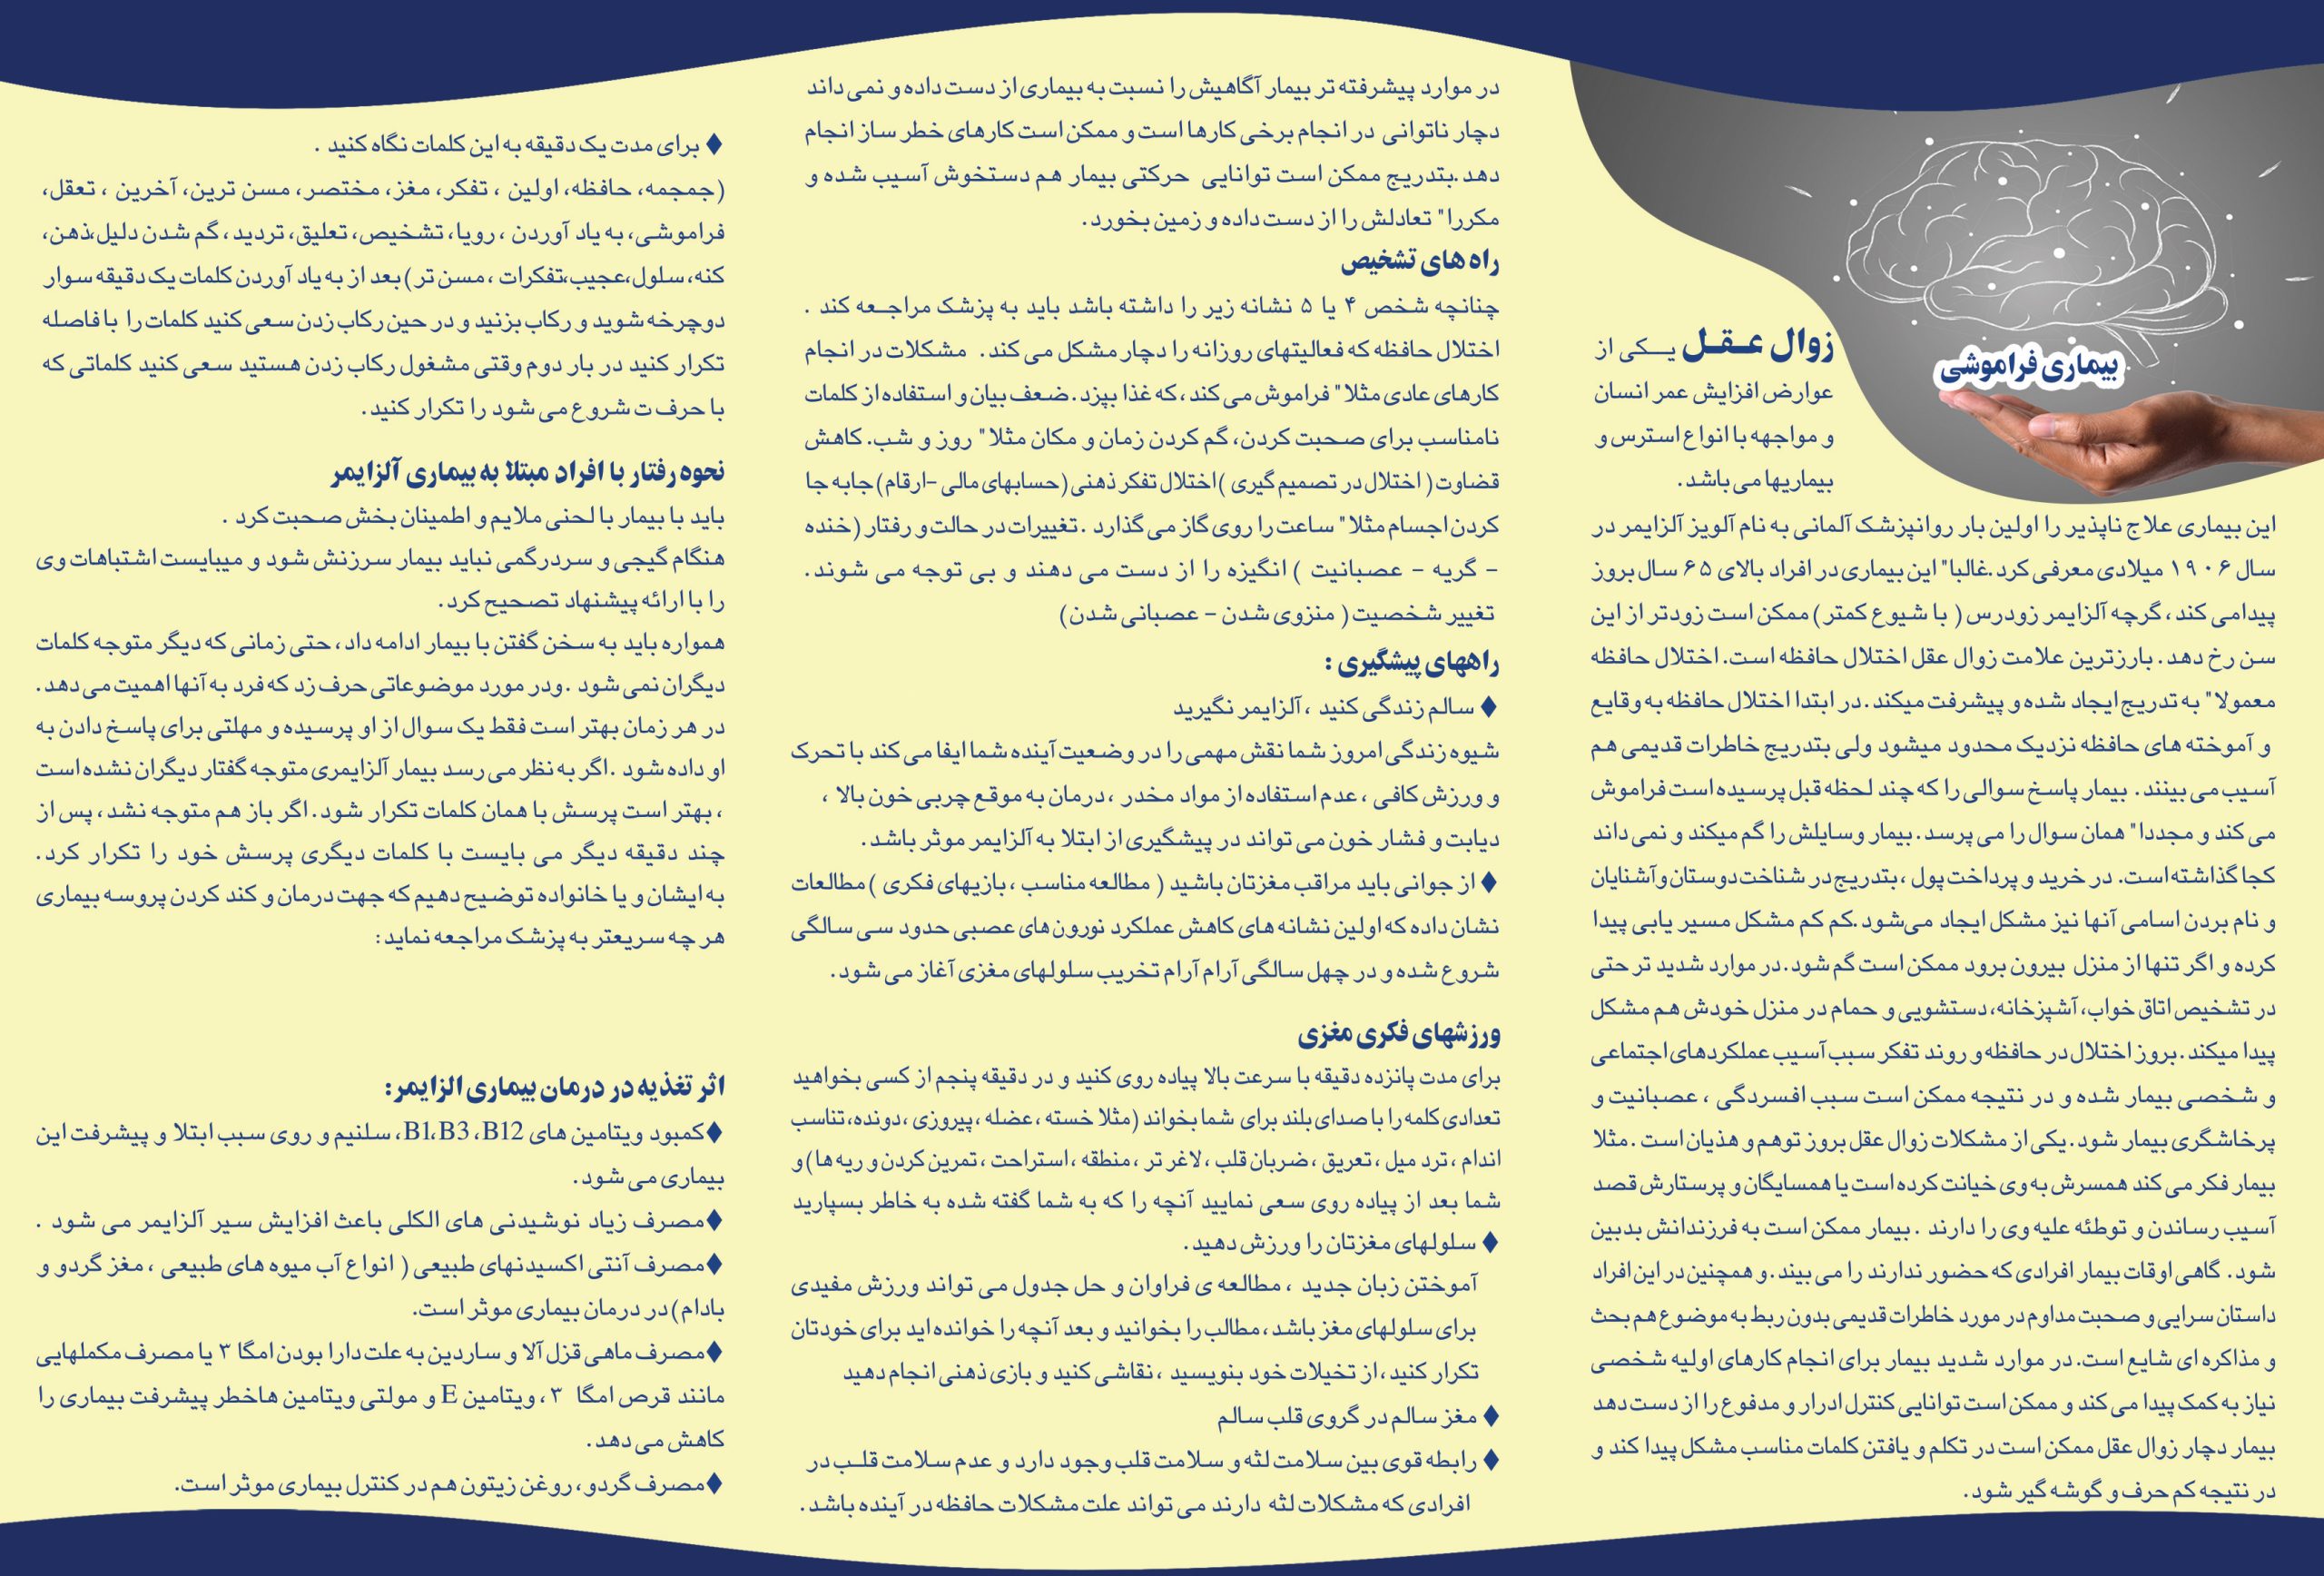 بیماری فراموشی
زوال عـقـل یـکی از
عوارض افزایش عمر انسان
و مواجهه با انواع استرس و
بیماریها می باشد .
این بیماری علاج ناپذیر را اولین بار روانپزشک آلمانی به نام آلویز آلزایمر در
سال ۱۹۰۶ میلادی معرفی کرد .غالبا" این بیماری در افراد بالای ۶۵ سال بروز
پیدامی کند ، گرچه آلزایمر زودرس ( با شیوع کمتر ) ممکن است زودتر از این
سن رخ دهد . بارزترین علامت زوال عقل اختلال حافظه است . اختلال حافظه
معمولا" به تدریج ایجاد شده و پیشرفت میکند . در ابتدا اختلال حافظه به وقایع
و آموخته های حافظه نزدیک محدود میشود ولی بتدریج خاطرات قدیمی هم
آسیب می بینند . بیمار پاسخ سوالی را که چند لحظه قبل پرسیده است فراموش
می کند و مجددا" همان سوال را می پرسد . بیمار وسایلش را گم میکند و نمی داند
کجا گذاشته است . در خرید و پرداخت پول ، بتدریج در شناخت دوستان وآشنایان
و نام بردن اسامی آنها نیز مشکل ایجاد می‌شود .کم کم مشکل مسیر یابی پیدا
کرده و اگر تنها از منزل بیرون برود ممکن است گم شود . در موارد شدید تر حتی
در تشخیص اتاق خواب، آشپزخانه، دستشویی و حمام در منزل خودش هم مشکل
پیدا میکند . بروز اختلال در حافظه و روند تفکر سبب آسیب عملکردهای اجتماعی
و شخصی بیمار شده و در نتیجه ممکن است سبب افسردگی ، عصبانیت و
پرخاشگری بیمار شود . یکی از مشکلات زوال عقل بروز توهم و هذیان است . مثلا
بیمار فکر می کند همسرش به وی خیانت کرده است یا همسایگان و پرستارش قصد
آسیب رساندن و توطئه علیه وی را دارند . بیمار ممکن است به فرزندانش بدبین
شود . گاهی اوقات بیمار افرادی که حضور ندارند را می بیند . و همچنین در این افراد
داستان سرایی و صحبت مداوم در مورد خاطرات قدیمی بدون ربط به موضوع هم بحث
و مذاکره ای شایع است. در موارد شدید بیمار برای انجام کارهای اولیه شخصی
نیاز به کمک پیدا می کند و ممکن است توانایی کنترل ادرار و مدفوع را از دست دهد
بیمار دچار زوال عقل ممکن است در تکلم و یافتن کلمات مناسب مشکل پیدا کند و
در نتیجه کم حرف و گوشه گیر شود .
در موارد پیشرفته تر بیمار آگاهیش را نسبت به بیماری از دست داده و نمی داند
دچار ناتوانی در انجام برخی کارها است و ممکن است کارهای خطر ساز انجام
دهد .بتدریج ممکن است توانایی حرکتی بیمار هم دستخوش آسیب شده و
مکررا" تعادلش را از دست داده و زمین بخورد .
راه های تشخیص
چنانچه شخص ۴ یا ۵ نشانه زیر را داشته باشد باید به پزشک مراجـعه کند .
اختلال حافظه که فعالیتهای روزانه را دچار مشکل می کند . مشکلات در انجام
کارهای عادی مثلا" فراموش می کند ، که غذا بپزد . ضعف بیان و استفاده از کلمات
نامناسب برای صحبت کردن، گم کردن زمان و مکان مثلا" روز و شب . کاهش
قضاوت ( اختلال در تصمیم گیری ) اختلال تفکر ذهنی ( حسابهای مالی -ارقام ) جابه جا
کردن اجسام مثلا" ساعت را روی گاز می گذارد . تغییرات در حالت و رفتار ( خنده
- گریه - عصبانیت ) انگیزه را از دست می دهند و بی توجه می شوند .
تغییر شخصیت ( منزوی شدن - عصبانی شدن )
راههای پیشگیری :
♦ سالم زندگی کنید ، آلزایمر نگیرید
شیوه زندگی امروز شما نقش مهمی را در وضعیت آینده شما ایفا می کند با تحرک
و ورزش کافی ، عدم استفاده از مواد مخدر ، درمان به موقع چربی خون بالا ،
دیابت و فشار خون می تواند در پیشگیری از ابتلا به آلزایمر موثر باشد .
♦ از جوانی باید مراقب مغزتان باشید ( مطالعه مناسب ، بازیهای فکری ) مطالعات
نشان داده که اولین نشانه های کاهش عملکرد نورون های عصبی حدود سی سالگی
شروع شده و در چهل سالگی آرام آرام تخریب سلولهای مغزی آغاز می شود .
ورزشهای فکری مغزی
برای مدت پانزده دقیقه با سرعت بالا پیاده روی کنید و در دقیقه پنجم از کسی بخواهید
تعدادی کلمه را با صدای بلند برای شما بخواند (مثلا خسته ، عضله ، پیروزی ، دونده، تناسب
اندام ، ترد میل ، تعریق ، ضربان قلب ، لاغر تر ، منطقه ، استراحت ، تمرین کردن و ریه ها ) و
شما بعد از پیاده روی سعی نمایید آنچه را که به شما گفته شده به خاطر بسپارید
♦ سلولهای مغزتان را ورزش دهید .
آموختن زبان جدید ، مطالعه ی فراوان و حل جدول می تواند ورزش مفیدی
برای سلولهای مغز باشد ، مطالب را بخوانید و بعد آنچه را خوانده اید برای خودتان
تکرار کنید ، از تخیلات خود بنویسید ، نقاشی کنید و بازی ذهنی انجام دهید
♦ مغز سالم در گروی قلب سالم
♦ رابطه قوی بین سلامت لثه و سلامت قلب وجود دارد و عدم سلامت قلـب در
افرادی که مشکلات لثه دارند می تواند علت مشکلات حافظه در آینده باشد .
♦ برای مدت یک دقیقه به این کلمات نگاه کنید .
(جمجمه، حافظه، اولین ، تفکر، مغز، مختصر، مسن ترین، آخرین ، تعقل،
فراموشی، به یاد آوردن ، رویا، تشخیص، تعلیق، تردید، گم شدن دلیل،ذهن،
کنه، سلول،عجیب،تفکرات ، مسن تر) بعد از به یاد آوردن کلمات یک دقیقه سوار
دوچرخه شوید و رکاب بزنید و در حین رکاب زدن سعی کنید کلمات را با فاصله
تکرار کنید در بار دوم وقتی مشغول رکاب زدن هستید سعی کنید کلماتی که
با حرف ت شروع می شود را تکرار کنید .
نحوه رفتار با افراد مبتلا به بیماری آلزایمر
باید با بیمار با لحنی ملایم و اطمینان بخش صحبت کرد .
هنگام گیجی و سردرگمی نباید بیمار سرزنش شود و میبایست اشتباهات وی
را با ارائه پیشنهاد تصحیح کرد .
همواره باید به سخن گفتن با بیمار ادامه داد ، حتی زمانی که دیگر متوجه کلمات
دیگران نمی شود . ودر مورد موضوعاتی حرف زد که فرد به آنها اهمیت می دهد .
در هر زمان بهتر است فقط یک سوال از او پرسیده و مهلتی برای پاسخ دادن به
او داده شود . اگر به نظر می رسد بیمار آلزایمری متوجه گفتار دیگران نشده است
، بهتر است پرسش با همان کلمات تکرار شود . اگر باز هم متوجه نشد ، پس از
چند دقیقه دیگر می بایست با کلمات دیگری پرسش خود را تکرار کرد .
به ایشان و یا خانواده توضیح دهیم که جهت درمان و کند کردن پروسه بیماری
هر چه سریعتر به پزشک مراجعه نماید :
اثر تغذیه در درمان بیماری الزایمر:
♦کمبود ویتامین های B1،B3 ،B12، سلنیم و روی سبب ابتلا و پیشرفت این
بیماری می شود .
♦مصرف زیاد نوشیدنی های الکلی باعث افزایش سیر آلزایمر می شود .
♦مصرف آنتی اکسیدنهای طبیعی ( انواع آب میوه های طبیعی ، مغز گردو و
بادام ) در درمان بیماری موثر است.
♦مصرف ماهی قزل آلا و ساردین به علت دارا بودن امگا ۳ یا مصرف مکملهایی
مانند قرص امگا ۳ ، ویتامین E و مولتی ویتامین هاخطر پیشرفت بیماری را
کاهش می دهد .
♦مصرف گردو، روغن زیتون هم در کنترل بیماری موثر است.